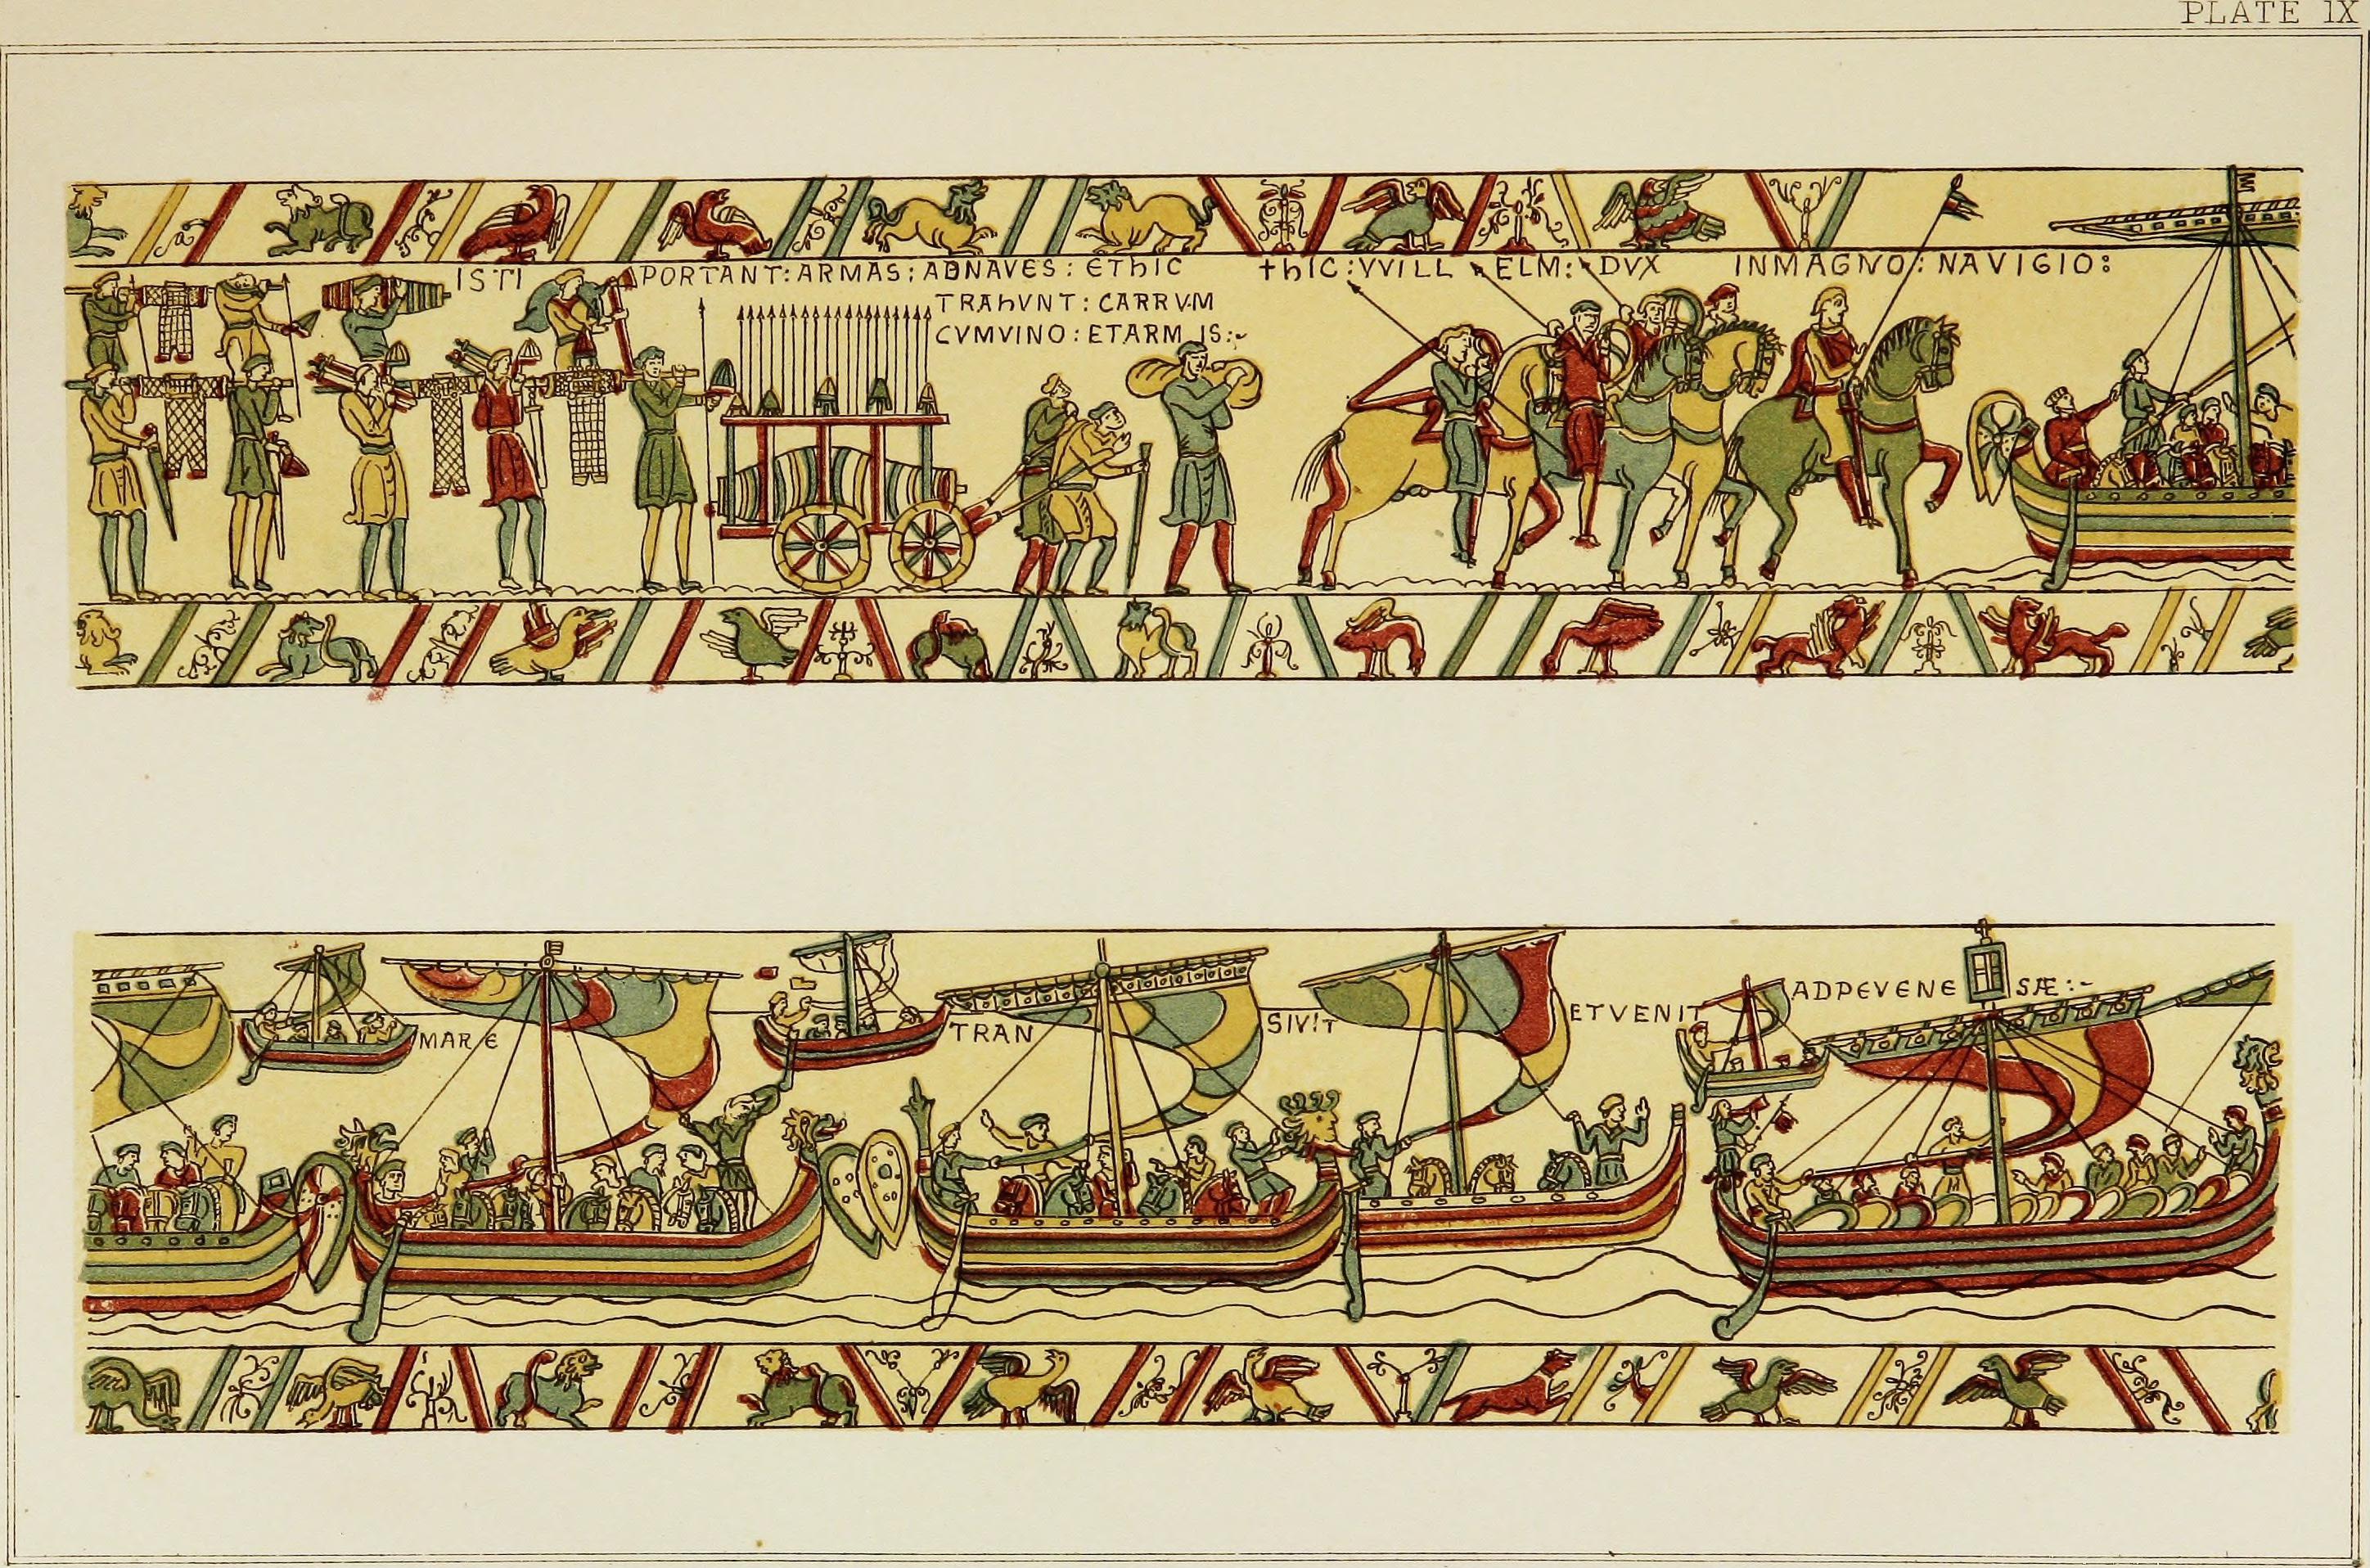 PLATE IX
ISTI PORTANT: ARMAS: ADNAVES: EThIC
TRAhVNT: CARRVM
CVMVINO: ETARMIS:~
†hIC: VVILLELM: DVX INMAGNO: NAVIGIO:
MARE TRANSIVIT ETVENIT ADPEVENESÆ:~